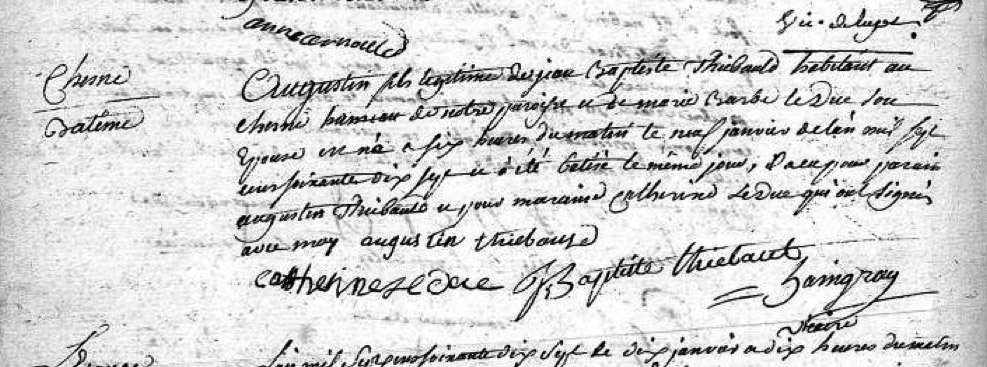 anne arnould
vic. de luzet
Chesne
Batême
Augustin fils legitime de jean Baptiste Thiebauld habitant au
chesne hameau de notre paroisse et de marie Barbe le Duc son
Epouse est né a six heures du matin le neuf janvier de lan mil sept
cent soixante dix sept et a été batisé le même jour, Il a eu pour parain
augustin Thiebauld et pour maraine Catherine Le Duc qui ont signés
avec moy augustin thiebauld
catherine le duc J Baptiste thiebaut
haingray
vicaire
L'an mil sept cent soixante dix sept le dix janvier a dix heures du matin